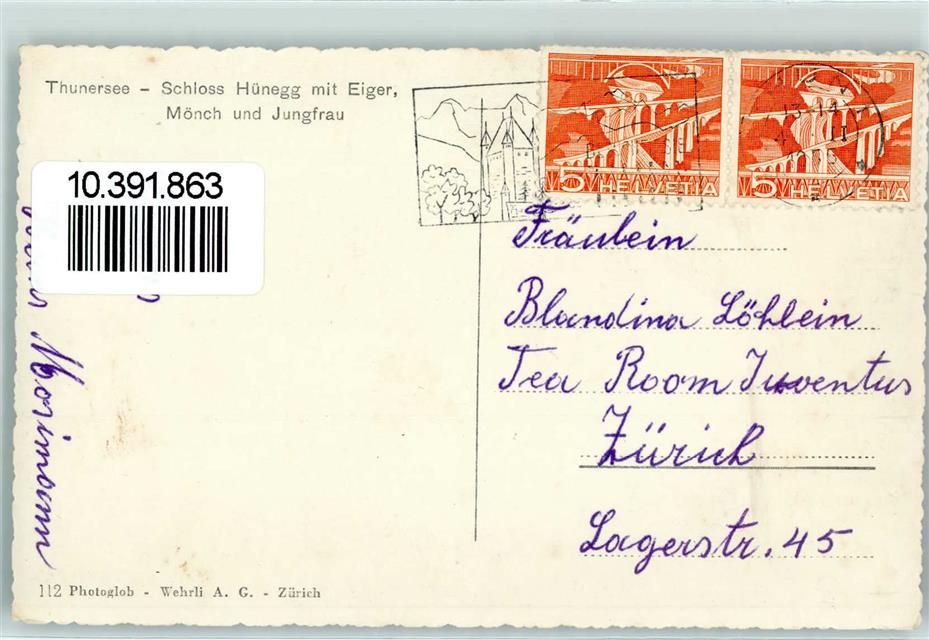 Thunersee – Schloss Hünegg mit Eiger,
Mönch und Jungfrau
10.391.863
5 HELVETIA
5 HELVETIA
13-14
II
Fräulein
Blandina Löhlein
Tea Room Juventus
Zürich
Lagerstr. 45
112 Photoglob - Wehrli A. G. - Zürich